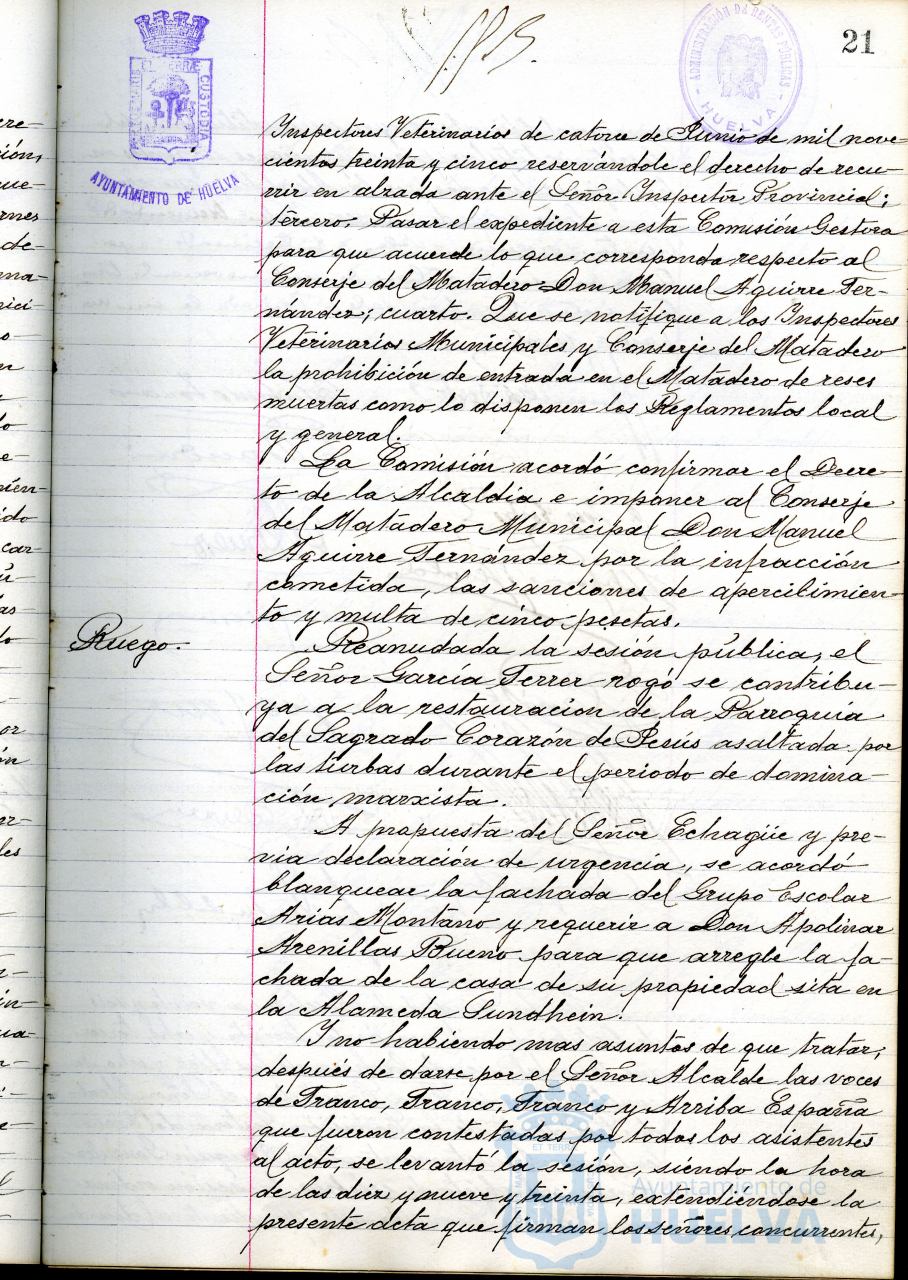 21
ADMINISTRACIÓN DE RENTAS PÚBLICAS
HUELVA
CUSTODIA
AYUNTAMIENTO DE HUELVA
Inspectores Veterinarios de catorce de Junio de mil nove-
cientos treinta y cinco reservándole el derecho de recu-
rrir en alzada ante el Señor Inspector Provincial;
tercero. Pasar el expediente a esta Comisión Gestora
para que acuerde lo que corresponda respecto al
Conserje del Matadero Don Manuel Aguirre Fer-
nández; cuarto. Que se notifique a los Inspectores
Veterinarios Municipales y Conserje del Matadero
la prohibición de entrada en el Matadero de reses
muertas como lo disponen los Reglamentos local
y general.
La Comisión acordó confirmar el Decre-
to de la Alcaldía e imponer al Conserje
del Matadero Municipal Don Manuel
Aguirre Fernández por la infracción
cometida, las sanciones de apercibimien-
to y multa de cinco pesetas.
Ruego.
Reanudada la sesión pública, el
Señor García Ferrer rogó se contribu-
ya a la restauración de la Parroquia
del Sagrado Corazón de Jesús asaltada por
las turbas durante el periodo de domina-
ción marxista.
A propuesta del Señor Echagüe y pre-
via declaración de urgencia, se acordó
blanquear la fachada del Grupo Escolar
Arias Montano y requerir a Don Apolinar
Arenillas Bueno para que arregle la fa-
chada de la casa de su propiedad sita en
la Alameda Sundhein.
Y no habiendo mas asuntos de que tratar,
después de darse por el Señor Alcalde las voces
de Franco, Franco, Franco y Arriba España
que fueron contestadas por todos los asistentes
al acto, se levantó la sesión, siendo la hora
de las diez y nueve y treinta, extendiéndose la
presente acta que firman los señores concurrentes,
Ayuntamiento de
HUELVA